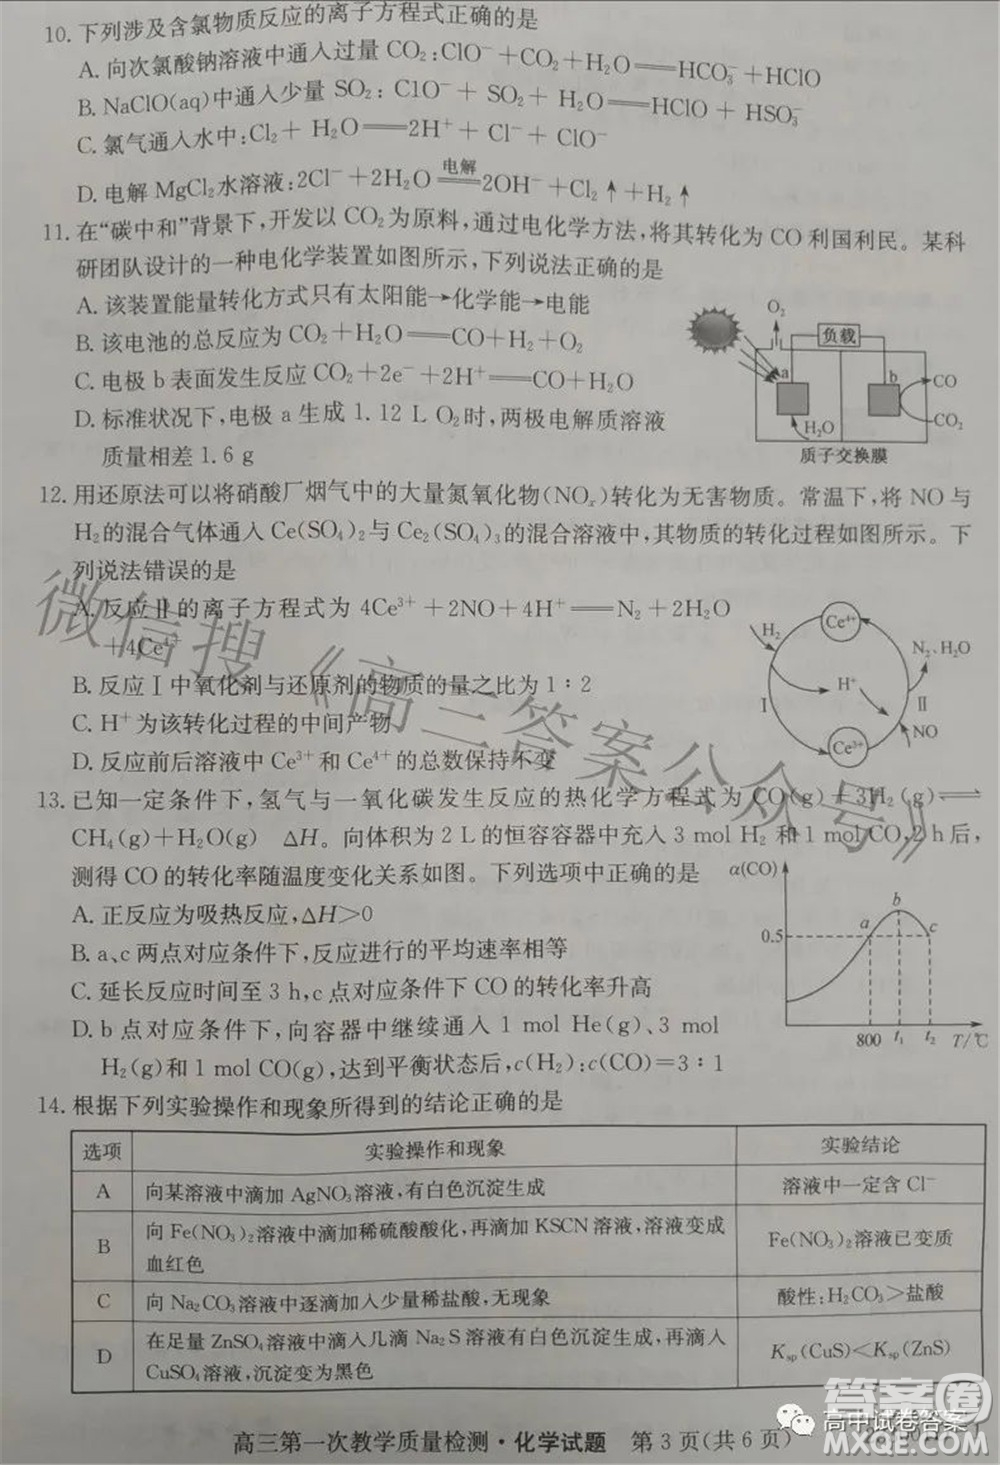 10. 下列涉及含氯物质反应的离子方程式正确的是
A. 向次氯酸钠溶液中通入过量 CO₂:ClO⁻+CO₂+H₂O══HCO₃⁻+HClO
B. NaClO(aq)中通入少量 SO₂: ClO⁻+SO₂+H₂O══HClO+HSO₃⁻
C. 氯气通入水中:Cl₂+H₂O══2H⁺+Cl⁻+ClO⁻
D. 电解 MgCl₂水溶液:2Cl⁻+2H₂O══电解══2OH⁻+Cl₂↑+H₂↑
11. 在“碳中和”背景下,开发以 CO₂为原料,通过电化学方法,将其转化为 CO 利国利民。某科
研团队设计的一种电化学装置如图所示,下列说法正确的是
A. 该装置能量转化方式只有太阳能→化学能→电能
B. 该电池的总反应为 CO₂+H₂O══CO+H₂+O₂
C. 电极 b 表面发生反应 CO₂+2e⁻+2H⁺══CO+H₂O
D. 标准状况下,电极 a 生成 1.12 L O₂时,两极电解质溶液
质量相差 1.6 g
O₂
负载
a
b
CO
CO₂
H₂O
质子交换膜
12. 用还原法可以将硝酸厂烟气中的大量氮氧化物(NOₓ)转化为无害物质。常温下,将 NO 与
H₂的混合气体通入 Ce(SO₄)₂与 Ce₂(SO₄)₃的混合溶液中,其物质的转化过程如图所示。下
列说法错误的是
A. 反应Ⅱ的离子方程式为 4Ce³⁺+2NO+4H⁺══N₂+2H₂O
+4Ce⁴⁺
B. 反应Ⅰ中氧化剂与还原剂的物质的量之比为 1∶2
C. H⁺为该转化过程的中间产物
D. 反应前后溶液中 Ce³⁺和 Ce⁴⁺的总数保持不变
Ce⁴⁺
H₂
N₂、H₂O
H⁺
Ⅰ
Ⅱ
NO
Ce³⁺
13. 已知一定条件下,氢气与一氧化碳发生反应的热化学方程式为 CO(g)+3H₂(g)⇌
CH₄(g)+H₂O(g) ΔH。向体积为 2 L 的恒容容器中充入 3 mol H₂ 和 1 mol CO,2 h 后,
测得 CO 的转化率随温度变化关系如图。下列选项中正确的是
A. 正反应为吸热反应,ΔH>0
B. a、c 两点对应条件下,反应进行的平均速率相等
C. 延长反应时间至 3 h,c 点对应条件下 CO 的转化率升高
D. b 点对应条件下,向容器中继续通入 1 mol He(g)、3 mol
H₂(g)和 1 mol CO(g),达到平衡状态后,c(H₂):c(CO)=3∶1
α(CO)
0.5
a
b
c
800 t₁ t₂ T/℃
14. 根据下列实验操作和现象所得到的结论正确的是
选项 实验操作和现象 实验结论
A 向某溶液中滴加 AgNO₃溶液,有白色沉淀生成 溶液中一定含 Cl⁻
B 向 Fe(NO₃)₂溶液中滴加稀硫酸酸化,再滴加 KSCN 溶液,溶液变成
血红色 Fe(NO₃)₂溶液已变质
C 向 Na₂CO₃溶液中逐滴加入少量稀盐酸,无现象 酸性:H₂CO₃>盐酸
D 在足量 ZnSO₄溶液中滴入几滴 Na₂S 溶液有白色沉淀生成,再滴入
CuSO₄溶液,沉淀变为黑色 Kₛₚ(CuS)<Kₛₚ(ZnS)
高三第一次教学质量检测·化学试题 第 3 页(共 6 页)
微信搜《高三答案公众号》
高中试卷答案
答案圈
MXQE.COM